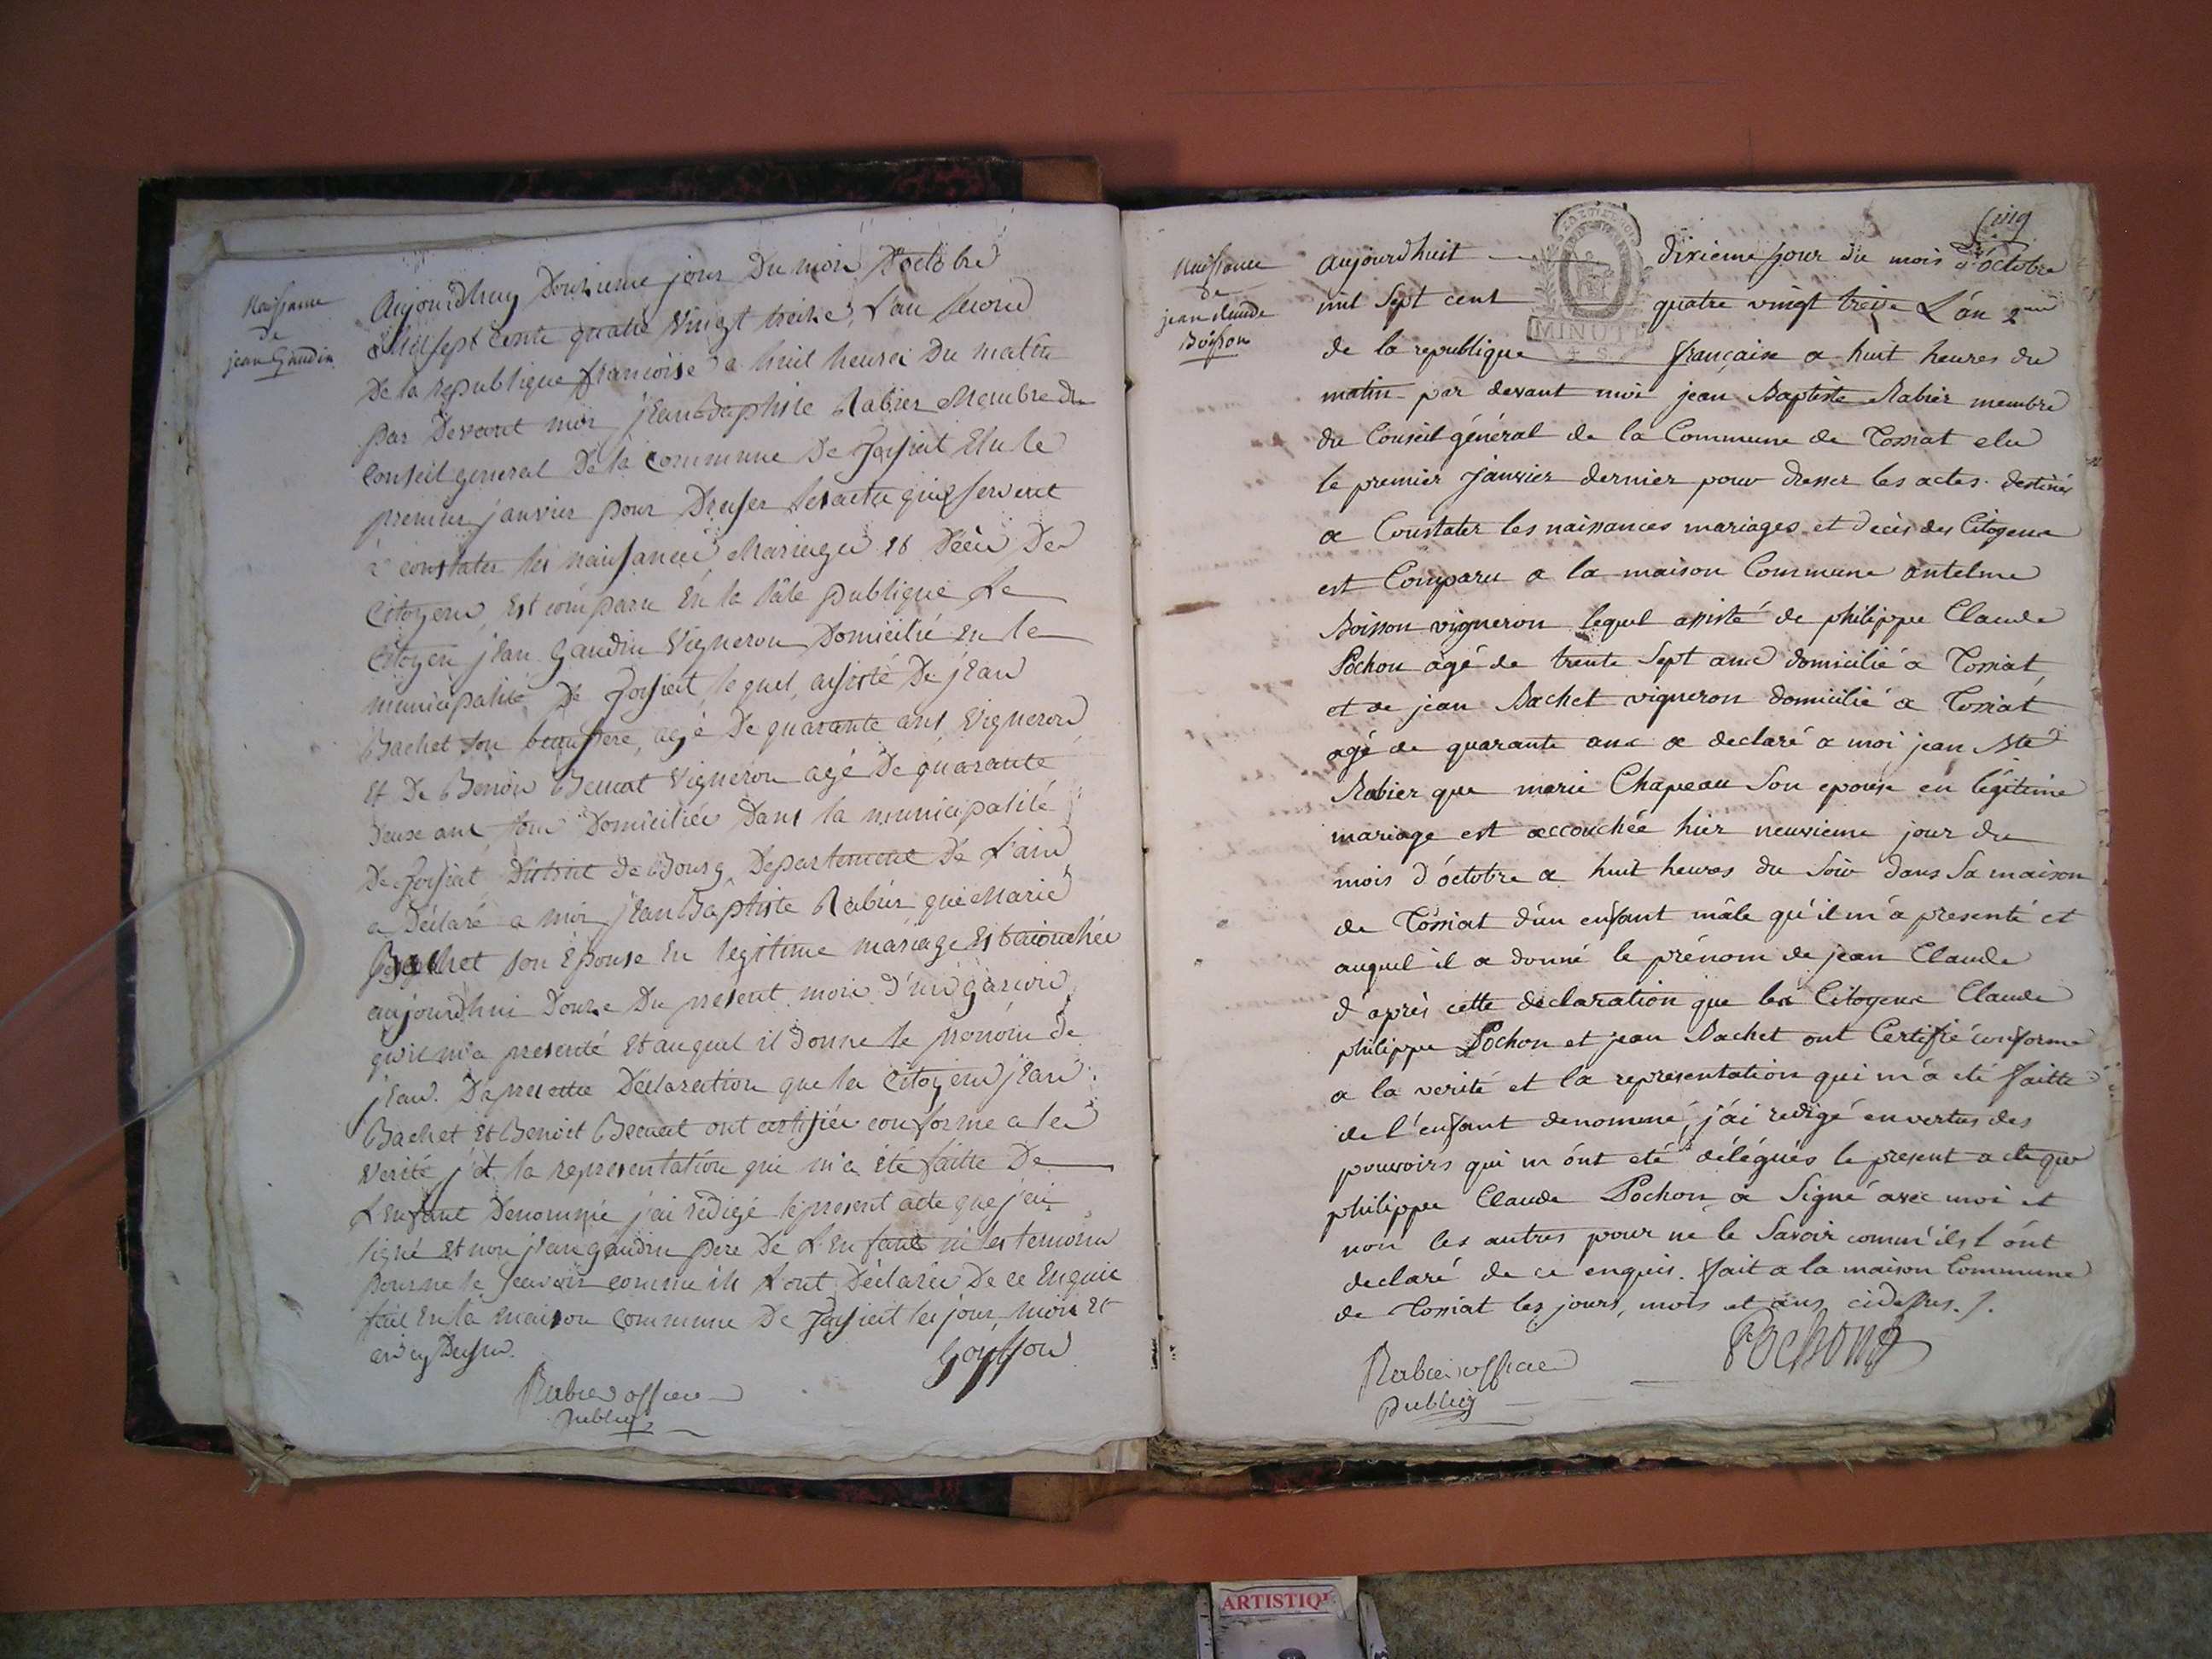 Naissance
de
jean Gaudin
Aujourdhuy Douzieme jour Du mois D'octobre
Mil sept cents quatre Vingt treize, L'an Second
De la republique francoise a huit heures Du matin
par Devant moi jean Baptiste Rabier Membre Du
Conseil general De la commune De Tossiat Elu le
premier janvier pour Dresser les actes qui servent
à constater les naissances, Mariages et Décès Des
Citoyens, Est comparu En la sale publique Le
Citoyen jean Gaudin Vigneron Domicilié en la
municipalité De Tossiat, lequel, assisté De jean
Bachet son beaupere, agé De quarante ans, Vigneron
Et De Benoit Vigneron agé De quarante
Deux ans tous Domiciliés Dans la municipalité
De Tossiat District de Bourg, Departement De L'ain
a Déclaré a moi jean Baptiste Rabier que Marie
Bachet son Epouse En legitime mariage Est accouchée
aujourdhui Douze Du present mois d'un garcon
qu'il m'a presenté Et auquel il Donne le prenom de
jean. D'apres cette Déclaration que les Citoyens jean
Bachet Et Benoit ont certifiée conforme a la
Verité, et la representation qui m'a été faitte De
L'enfant Denommé j'ai rédigé le present acte que j'ai
signé Et non jean gaudin pere De L'enfant ni les temoins
pour ne le scavoir comme ils L'ont Déclarée De ce Enquis
fait En la maison commune De Tossiat les jour, mois et
an cy Dessus.
Goiffon
Rabier officier
public
cinq
Naissance
de
jean claude
Boisson
aujourdhuit dixieme jour du mois d'octobre
mil sept cent quatre vingt treize L'an 2me
MINUTE
de la republique française a huit heures du
matin par devant moi jean Baptiste Rabier membre
du Conseil général de la Commune de Tossiat elu
le premier janvier dernier pour dresser les actes destinés
a Constater les naissances mariages et décès des Citoyens
est Comparu a la maison Commune antelme
Boisson vigneron lequel assisté de philippe Claude
Pochon agé de trente sept ans domicilié a Tossiat,
et de jean Bachet vigneron domicilié a Tossiat
agé de quarante ans a declaré a moi jean Bte
Rabier que marie Chapeau son epouse en légitime
mariage est accouchée hier neuvieme jour du
mois d'octobre a huit heures du soir dans sa maison
de Tossiat d'un enfant mâle qu'il m'a presenté et
auquel il a donné le prénom de jean Claude
d'après cette declaration que les Citoyens Claude
philippe Pochon et jean Bachet ont Certifié conforme
a la verité et la representation qui m'a eté faitte
de l'enfant denommé, j'ai redigé en vertus des
pouvoirs qui m'ont eté délégués le present acte que
philippe Claude Pochon a signé avec moi et
non les autres pour ne le savoir comm'ils l'ont
declaré de ce enquis. fait a la maison Commune
de Tossiat les jours, mois et ans cidessus.
Pochon
Rabier officier
public
ARTISTIQU